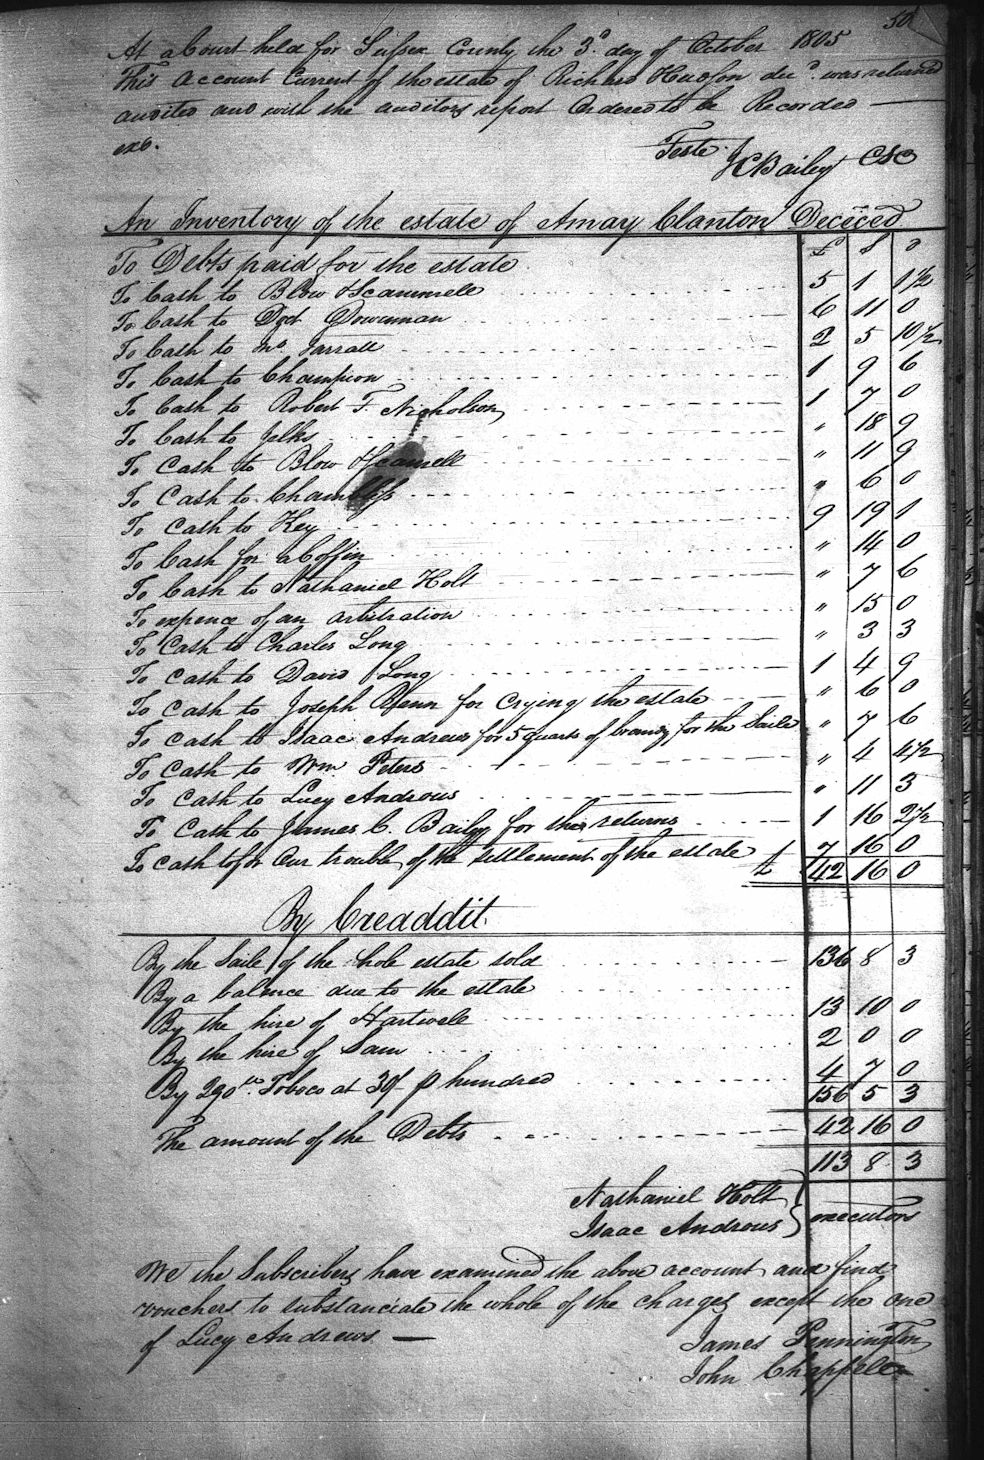 50
At a Court held for Sussex County the 3d. day of October 1805
This Account Current of the estate of Richard Hudson decd. was returned
audited and with the auditors report Ordered to be Recorded —
exd.
Teste. JCBailey CSC
An Inventory of the estate of Amay Clanton Dececed
To Debts paid for the estate £ S D
To Cash to Blow & Scammell 5 1 1½
To Cash to Doct Bowman 6 11 0
To Cash to Mr Jarrall 2 5 10½
To Cash to Champion 1 9 6
To Cash to Robert T. Nicholson 1 7 0
To Cash to Jelks " 18 9
To Cash to Blow & Scamell " 11 9
To Cash to Chambliss " 6 0
To Cash to Key 9 19 1
To Cash for a Coffin " 14 0
To Cash to Nathaniel Holt " 7 6
To expence of an arbitration " 15 0
To Cash to Charles Long " 3 3
To Cash to David Long 1 4 9
To Cash to Joseph Renn for Crying the estate " 6 0
To Cash to Isaac Andrews for 5 quarts of brandy for the Saile " 7 6
To Cash to Wm Peters " 4 4½
To Cash to Lucy Andrews " 11 3
To Cash to James C. Bailey for their returns 1 16 2½
To cash to for Our trouble of the settlement of the estate 7 16 0
£ 42 16 0
By Creaddit
By the Saile of the hole estate sold 136 8 3
By a balence due to the estate
By the hire of Hartwell 13 10 0
By the hire of Sam 2 0 0
By 290 lb. Tobaco at 30/ p hundred 4 7 0
156 5 3
The amount of the Debts 42 16 0
113 8 3
Nathaniel Holt
Isaac Andrews } executors
We the Subscribers have examined the above account and find
vouchers to substanciate the whole of the charges except the one
of Lucy Andrews —
James Pennington
John Chappell